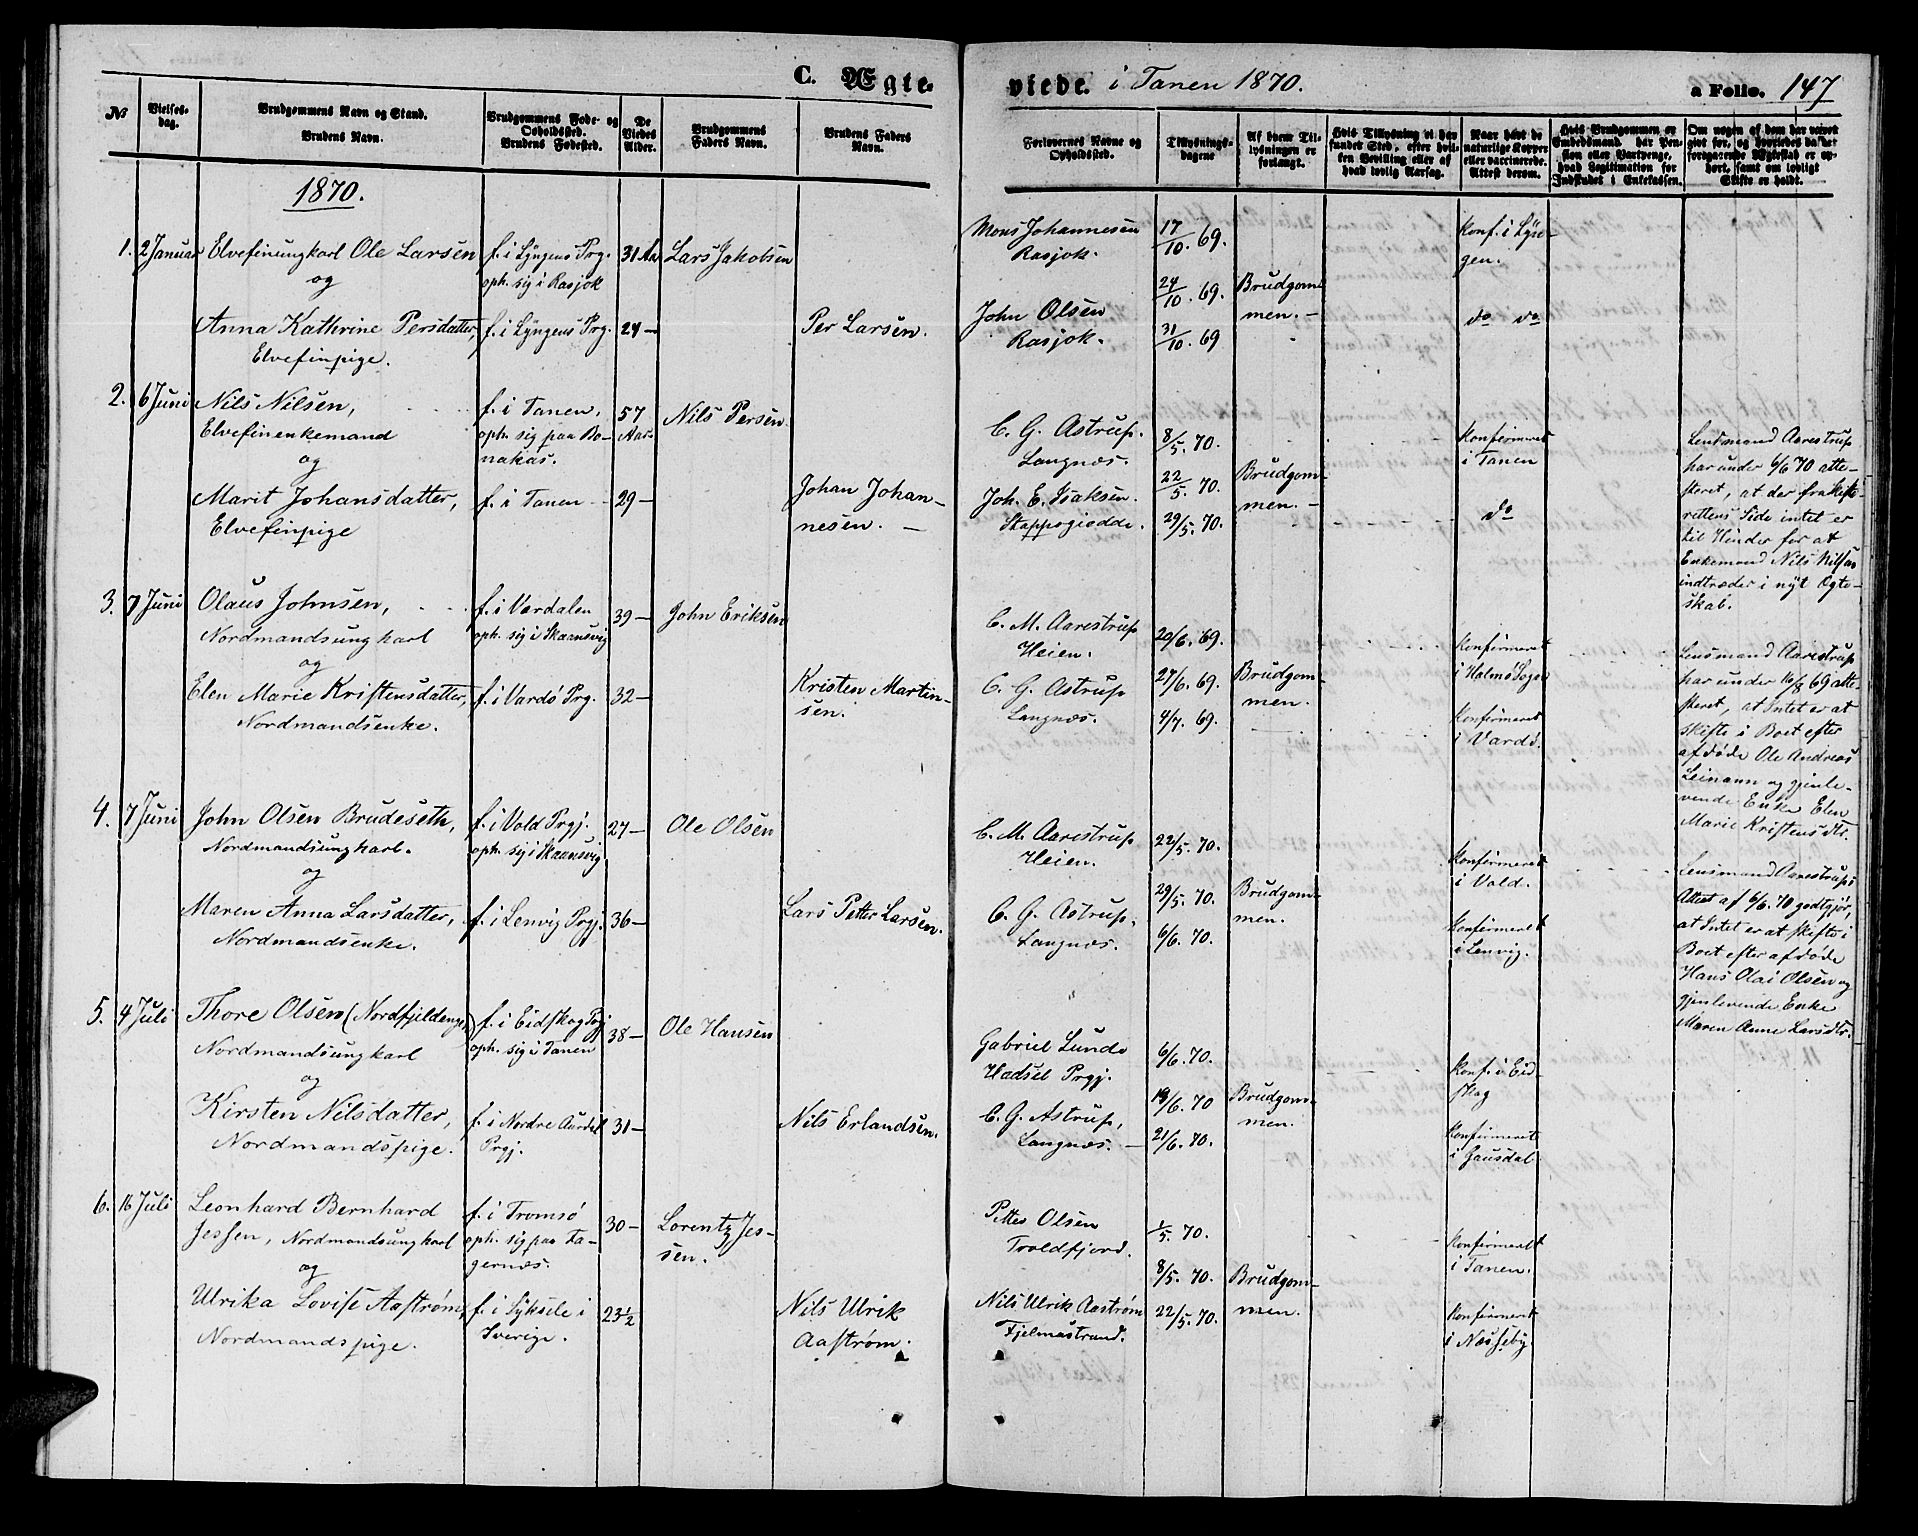 C. Ægte-
viede. i Tanen 1870.
a Folio. 147
No
Vielses-
dag.
Brudgommens Navn og Stand.
Brudens Navn.
Brudgommens Føde- og
Opholdssted.
Brudens Fødested.
De
Viedes
Alder.
Brudgommens
Faders Navn.
Brudens Faders
Navn.
Forlovernes Navne og
Opholdssted.
Tillysnings-
dagene
Af hvem Til-
lysningen er
forlangt.
Hvis Tillysning ei har
fundet Sted, efter hvil-
ken Bevilling eller af
hvad lovlig Aarsag.
Naar havt de
naturlige Kopper
eller vaccinerede.
Attest derom.
Hvis Brudgommen er
Embedsmand har Pen-
sion eller Vartpenge,
hvad Legitimation for
Indskudet i Enkekassen.
Om nogen af dem har været
gift før, og hvorledes da det
foregaaende Ægteskab er op-
hørt, samt om lovligt
Skifte er holdt.
1870.
1. 2 Januar
Elvefinungkarl Ole Larsen
og
Anna Kathrine Persdatter,
Elvefinpige.
f. i Lyngens Prg.
oph. sig i Rasjok
f. i Lyngens Prg.
31 Aar
24 —
Lars Jakobsen
Per Larsen.
Mons Johannesen
Rasjok.
John Olsen
Rasjok.
17/10. 69.
24/10. 69.
31/10. 69
Brudgom-
men. —
Konf. i Lyn-
gen.
do do
2. 6 Juni
Nils Nilsen,
Elvefinenkemand
og
Marit Johansdatter,
Elvefinpige
f. i Tanen,
oph. sig paa Bo-
nakas.
f. i Tanen
57
Aar
29 —
Nils Persen
Johan Johan-
nesen. —
C. G. Astrup.
Langnæs.
Joh. E. Isaksen.
Skappogiedde.
8/5. 70.
22/5. 70.
29/5. 70.
Brudgom-
men. —
Konfirmeret
i Tanen
do
Lensmand Aarestrup
har under 6/6 70 atte-
steret, at der fra Skifte-
rettens Side intet er
til Hinder for at
Enkemand Nils Nilsen
indtræder i nyt Ægte-
skab.
3. 7 Juni
Olaus Johnsen,
Nordmandsungkarl
og
Elen Marie Kristensdatter,
Nordmandsenke.
f. i Værdalen
oph. sig i Skaansvig
f. i Vardø Prg.
39 —
32 —
John Eriksen
Kristen Martin-
sen.
C. M. Aarestrup
Heien.
C. G. Astrup
Langnæs.
20/6. 69.
27/6. 69.
4/7. 69.
Brudgom-
men.
Konfirmeret
i Halmø Sogn
Konfirmeret
i Vardø.
Lensmand Aarestrup
har under 10/8 69 atte-
steret, at Intet er at
skifte i Boet efter
afdøde Ole Andreas
Leinann og gjenle-
vende Enke Elen
Marie Kristensdtr.
4. 7 Juni
John Olsen Brudeseth,
Nordmandsungkarl.
og
Maren Anna Larsdatter,
Nordmandsenke.
f. i Vold Prgj.
oph. sig i Skaansvig
f. i Lenvig Prgj.
27 —
36 —
Ole Olsen
Lars Petter Larsen.
C. M. Aarestrup
Heien.
C. G. Astrup.
Langnæs.
22/5. 70.
29/5. 70.
6/6. 70.
Brudgom-
men.
Konfirmeret
i Vold.
Konfirmeret
i Lenvig.
Lensmand Aarestrups
Attest af 6/6. 70 godtgjør,
at Intet er at skifte i
Boet efter afdøde
Hans Olai Olsen og
gjenlevende Enke
Maren Anne Larsdtr.
5. 4 Juli
Thore Olsen (Nordfjeldenget)
Nordmandsungkarl
og
Kirsten Nilsdatter,
Nordmandspige.
f. i Eidskog Prgj
oph. sig i Tanen
f. i Nordre Aurdal
Prgj.
38 —
31 —
Ole Hansen
Nils Erlandsen.
Gabriel Lunde
Hadsel Prgj.
C. G. Astrup,
Langnæs. —
6/6. 70.
19/6. 70
21/6. 70.
Brudgom-
men.
Konf. i Eid-
skog
Konfirmeret
i Gausdal
6. 16 Juli
Leonhard Bernhard
Jessen, Nordmandsungkarl
og
Ulrika Lovise Aastrøm,
Nordmandspige.
f. i Tromsø
oph. sig paa Ta-
gernæs.
f. i Lyksele i
Sverige.
30 —
23 1/2
Lorentz Jes-
sen.
Nils Ulrik
Aastrøm.
Petter Olsen
Troldfjord.
Nils Ulrik Aastrøm
Fjelmastrand.
1/5. 70.
8/5. 70.
22/5. 70.
Brudgom-
men.
Konfirmeret
i Tanen.
Konfirmeret
i Næsseby